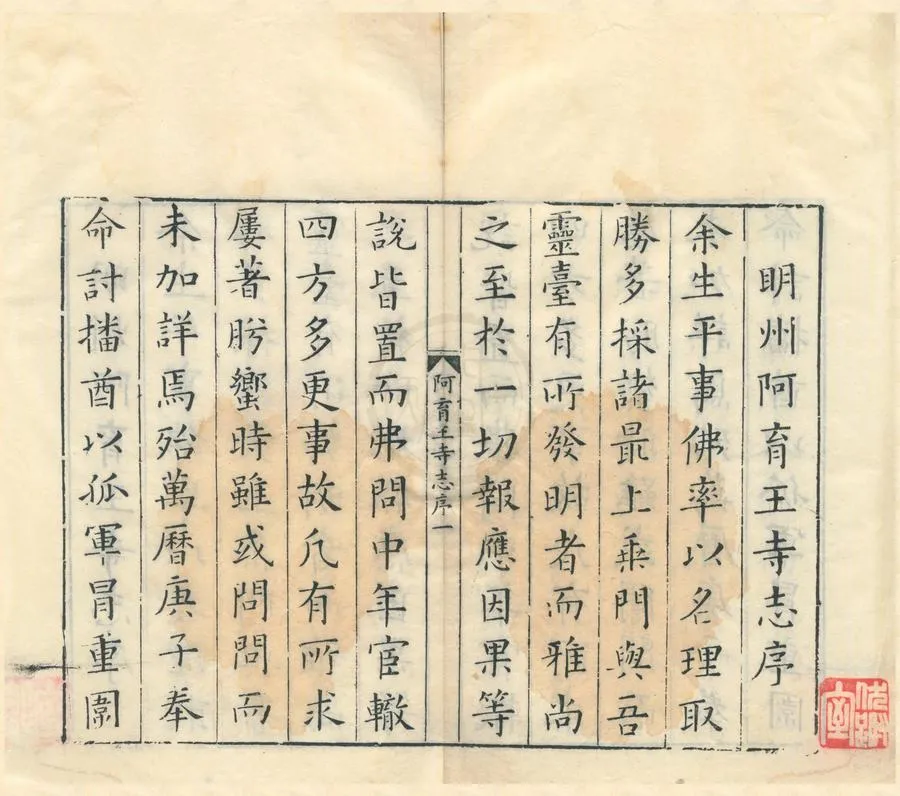 明州阿育王寺志序
余生平事佛率以名理取
勝多採諸最上乘門與吾
靈臺有所發明者而雅尚
之至於一切報應因果等
阿育王寺志序一
說皆置而弗問中年宦轍
四方多更事故凢有所求
屢著肹蠁時雖或問問而
未加詳焉殆萬曆庚子奉
命討播酋以孤軍冒重圍